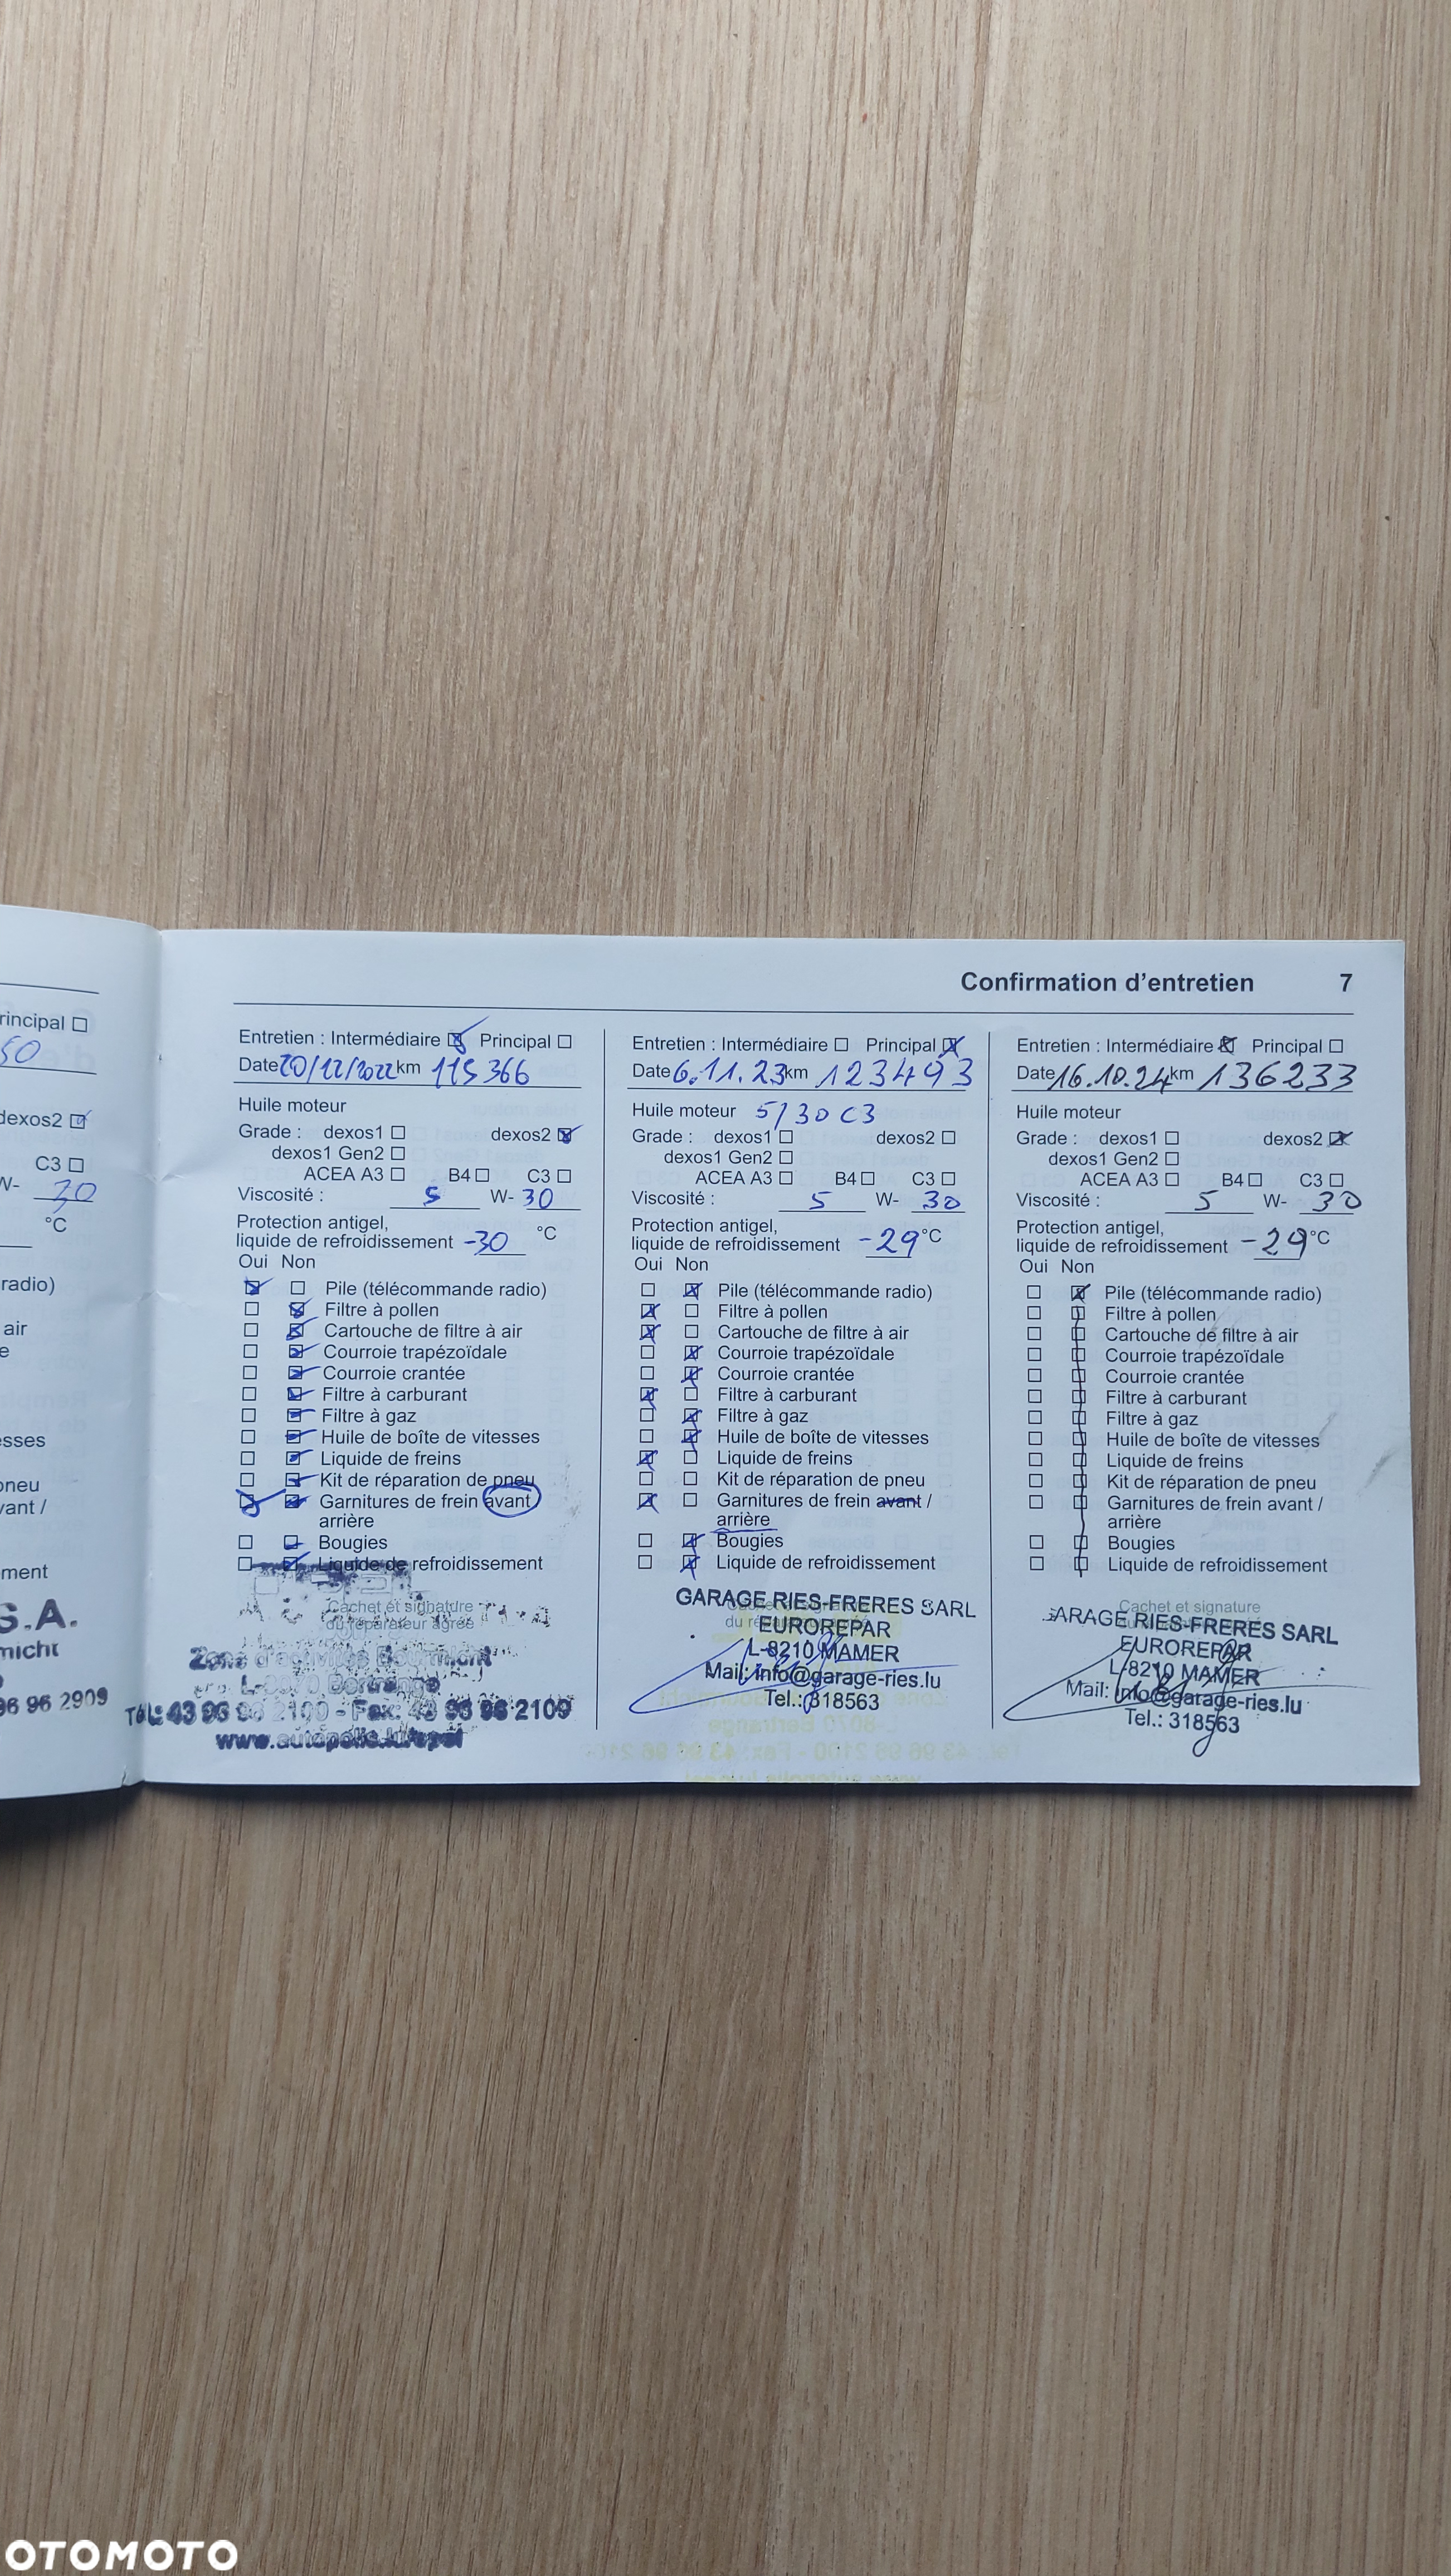 rincipal
50
dexos2
C3
W- 30
°C
radio)
air
e
esses
oneu
vant /
ment
S.A.
micht
96 96 2909
Confirmation d'entretien 7
Entretien : Intermédiaire Principal
Date 20/12/2022 km 115 366
Huile moteur
Grade : dexos1 dexos2
dexos1 Gen2
ACEA A3 B4 C3
Viscosité : 5 W- 30
Protection antigel,
liquide de refroidissement -30 °C
Oui Non
Pile (télécommande radio)
Filtre à pollen
Cartouche de filtre à air
Courroie trapézoïdale
Courroie crantée
Filtre à carburant
Filtre à gaz
Huile de boîte de vitesses
Liquide de freins
Kit de réparation de pneu
Garnitures de frein avant
arrière
Bougies
Liquide de refroidissement
Cachet et signature
du réparateur agréé
Zone d'activités Bourmicht
L-8070 Bertrange
Tél.: 43 96 96 2100 - Fax: 43 96 96 2109
www.autopolis.lu/opel
Entretien : Intermédiaire Principal
Date 6.11.23 km 123493
Huile moteur 5/30 C3
Grade : dexos1 dexos2
dexos1 Gen2
ACEA A3 B4 C3
Viscosité : 5 W- 30
Protection antigel,
liquide de refroidissement -29 °C
Oui Non
Pile (télécommande radio)
Filtre à pollen
Cartouche de filtre à air
Courroie trapézoïdale
Courroie crantée
Filtre à carburant
Filtre à gaz
Huile de boîte de vitesses
Liquide de freins
Kit de réparation de pneu
Garnitures de frein avant /
arrière
Bougies
Liquide de refroidissement
GARAGE RIES-FRERES SARL
EUROREPAR
L-8210 MAMER
Mail: info@garage-ries.lu
Tel.: 318563
Entretien : Intermédiaire Principal
Date 16.10.24 km 136233
Huile moteur
Grade : dexos1 dexos2
dexos1 Gen2
ACEA A3 B4 C3
Viscosité : 5 W- 30
Protection antigel,
liquide de refroidissement -29 °C
Oui Non
Pile (télécommande radio)
Filtre à pollen
Cartouche de filtre à air
Courroie trapézoïdale
Courroie crantée
Filtre à carburant
Filtre à gaz
Huile de boîte de vitesses
Liquide de freins
Kit de réparation de pneu
Garnitures de frein avant /
arrière
Bougies
Liquide de refroidissement
Cachet et signature
GARAGE RIES-FRERES SARL
EUROREPAR
L-8210 MAMER
Mail: info@garage-ries.lu
Tel.: 318563
OTOMOTO